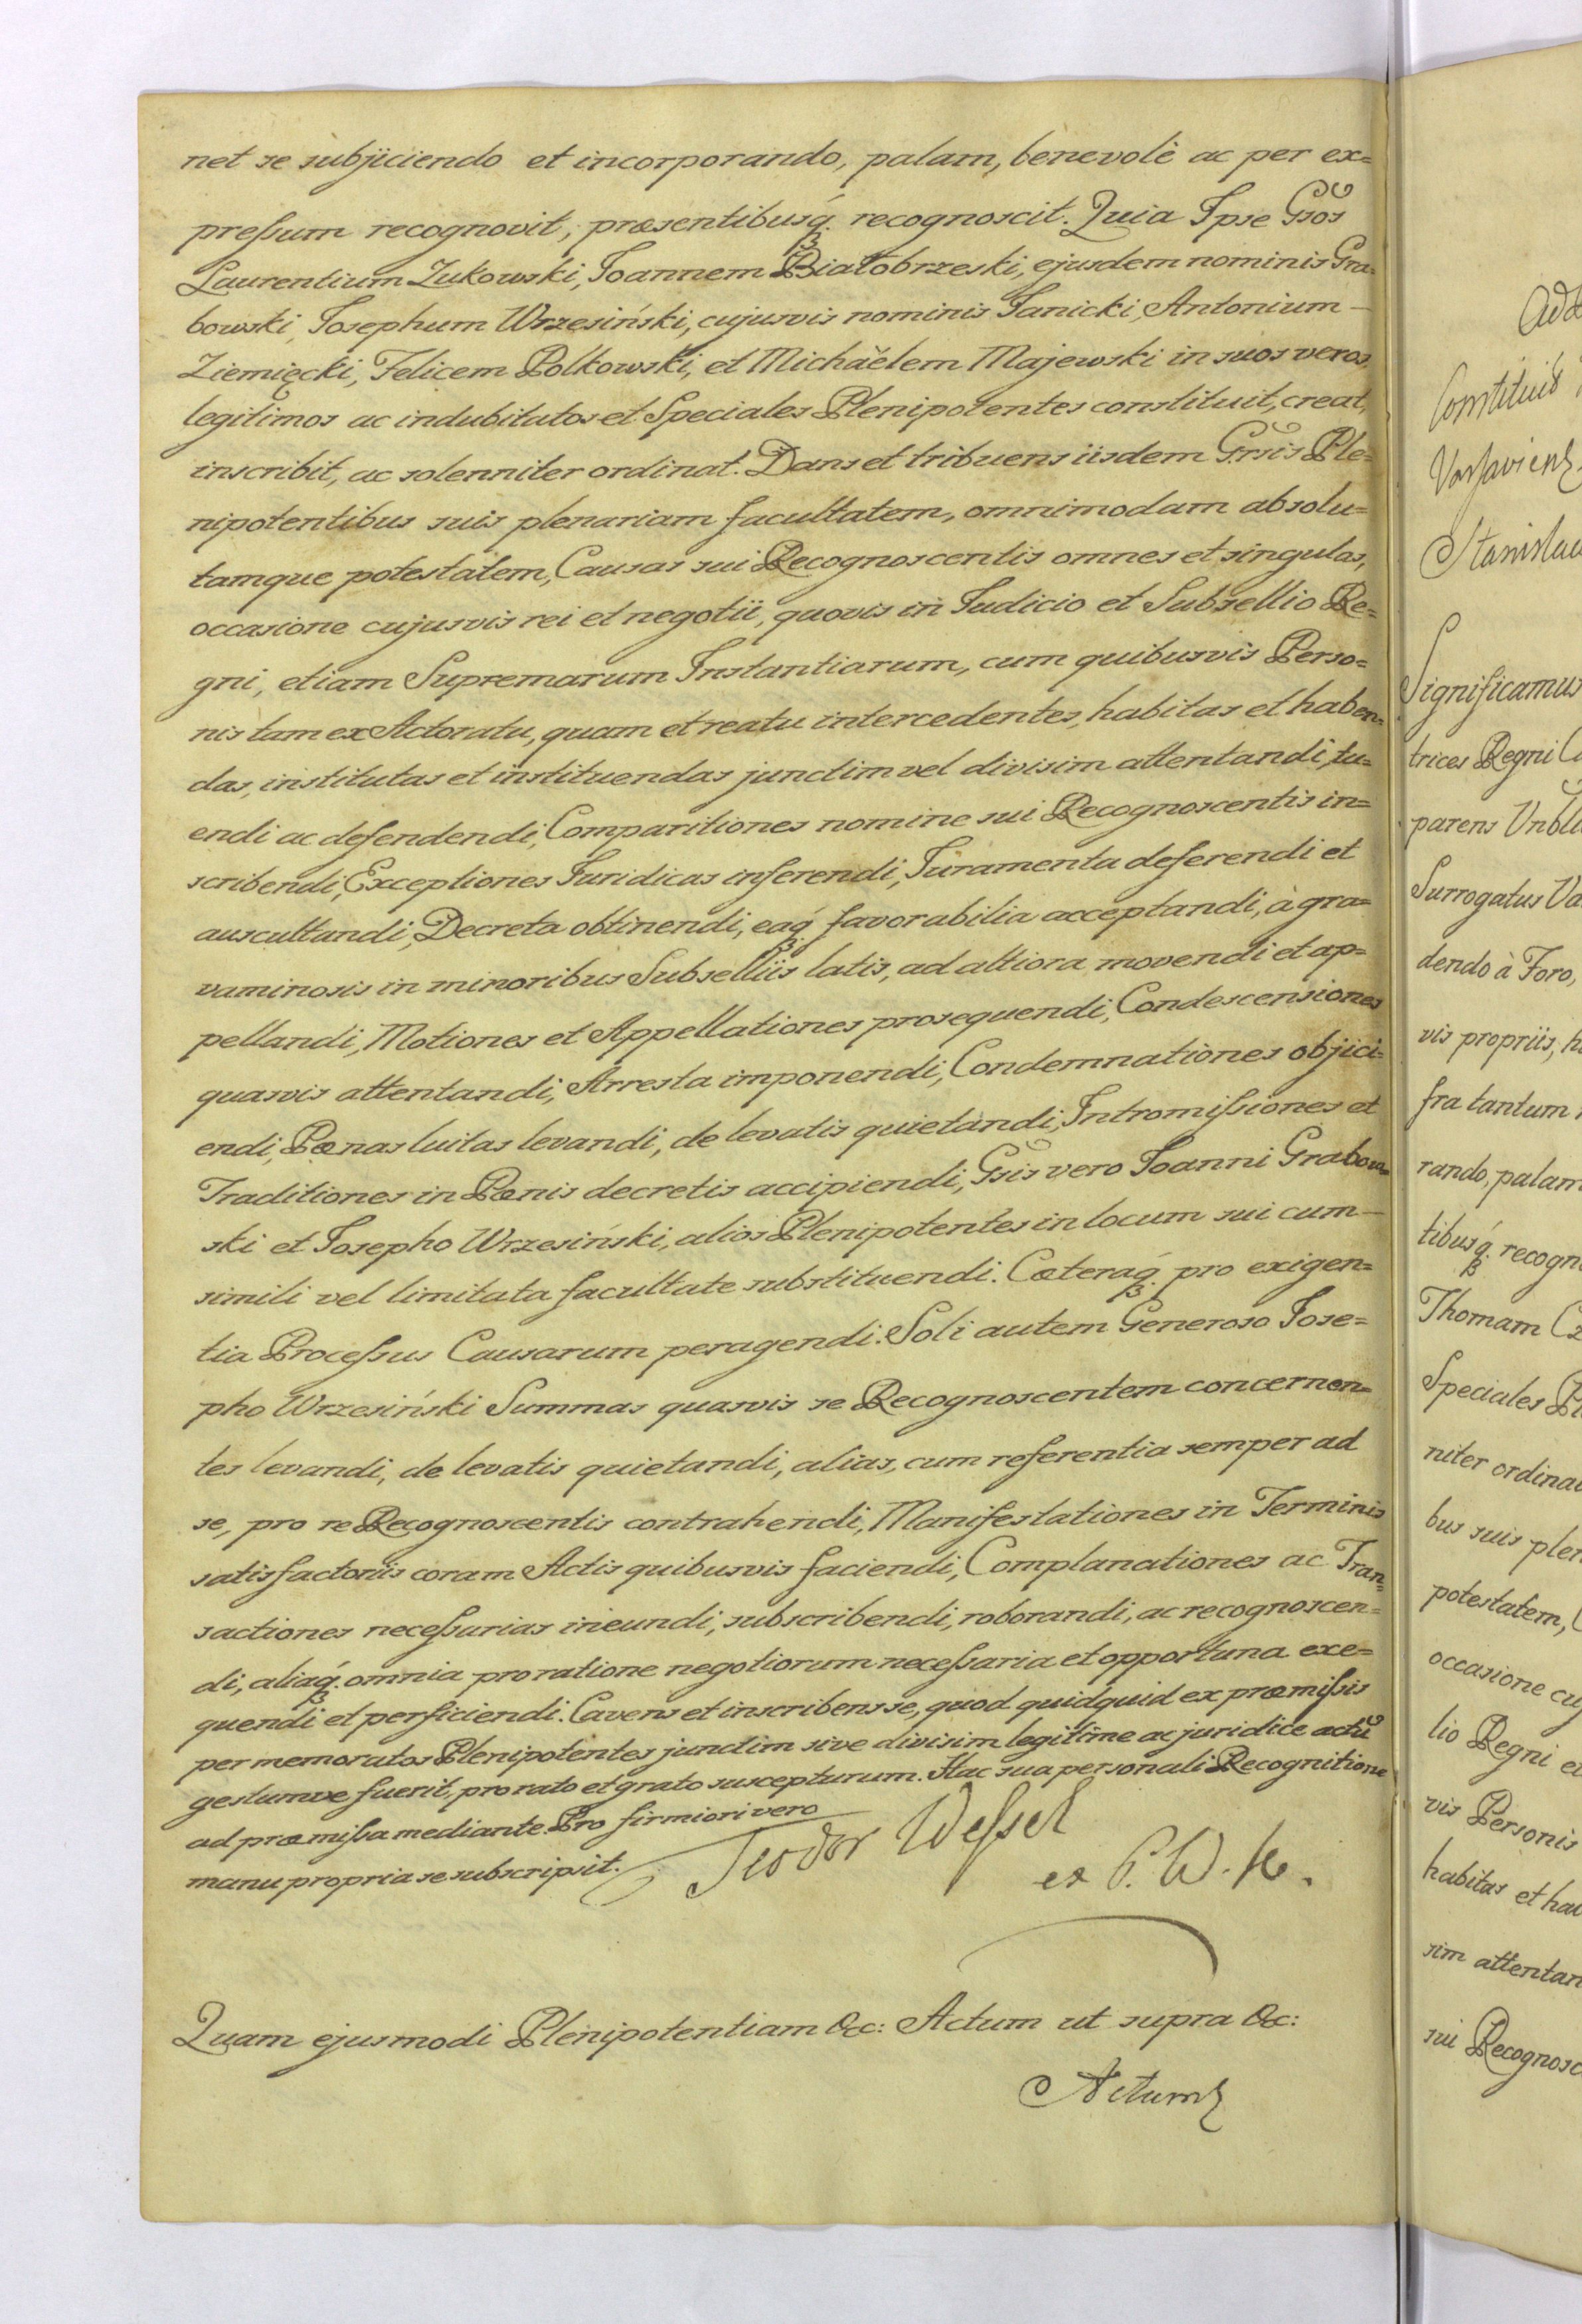 net se subjiciendo et incorporando, palam, benevolè ac per ex=
preſsum recognovit, præsentibusq́ꝫ recognoscit. Quia Ipse Gsos
Laurentium Zukowski, Joannem Białobrzeski, ejusdem nominis Gra=
bowski, Josephum Wrzesiński, cujusvis nominis Janicki, Antonium
Ziemięcki, Felicem Polkowski, et Michäelem Majewski in suos veros,
legitimos ac indubitatos et Speciales Plenipotentes constituit, creat,
inscribit, ac solenniter ordinat. Dans et tribuens iisdem G.rsis Ple=
nipotentibus suis plenariam facultatem, omnimodam absolu=
tamque potestatem, Causas sui Recognoscentis omnes et singulas,
occasione cujusvis rei et negotii, quovis in Judicio et Subsellio Re=
gni, etiam Supremarum Instantiarum, cum quibusvis Perso=
nis tam ex Actoratu, quam et reatu intercedentes, habitas et haben=
das, institutas et instituendas junctim vel divisim attentandi, tu=
endi ac defendendi, Comparitiones nomine sui Recognoscentis in=
scribendi, Exceptiones Juridicas inferendi, Juramenta deferendi et
auscultandi, Decreta obtinendi, eaq́ꝫ favorabilia acceptandi, à gra=
vaminosis in minoribus Subselliis latis, ad altiora movendi et ap=
pellandi, Motiones et Appellationes prosequendi, Condescensiones
quasvis attentandi, Arresta imponendi, Condemnationes objici=
endi, Pœnas luitas levandi, de levatis quietandi, Intromiſsiones et
Traditiones in Pœnis decretis accipiendi, Gsis vero Joanni Grabow=
ski et Josepho Wrzesiński, alios Plenipotentes in locum sui cum
simili vel limitata facultate substituendi. Cæteraq́ꝫ pro exigen=
tia Proceſsus Causarum peragendi. Soli autem Generoso Jose=
pho Wrzesiński Summas quasvis se Recognoscentem concernen=
tes levandi, de levatis quietandi, alias, cum referentia semper ad
se, pro re Recognoscentis contrahendi, Manifestationes in Terminis
satisfactoriis coram Actis quibusvis faciendi, Complanationes ac Tran=
sactiones neceſsarias ineundi, subscribendi, roborandi, ac recognoscen=
di, aliaq́ꝫ omnia pro ratione negotiorum neceſsaria et opportuna exe=
quendi et perficiendi. Cavens et inscribens se, quod quidquid ex præmiſsis
per memoratos Plenipotentes junctim sive divisim legitime ac juridice actũ
gestumve fuerit, pro rato et grato suscepturum. Hac sua personali Recognitione
ad præmiſsa mediante. Pro firmiori vero
manu propria se subscripsit. Teodor Weſsel
Quam ejusmodi Plenipotentiam &c: Actum ut supra &c:
Actum
Constituit
Varsavien
Stanislau
Significamus
trices Regni
parens
Surrogatus Va
dendo à Foro,
vis propriis,
fra tantum
rando, palam
tibusq́ꝫ recogn
Thomam Cz
Speciales Pl
niter ordinat
bus suis plen
potestatem,
occasione cuj
lio Regni et
vis Personis
habitas et ha
sim attentan
sui Recognosc